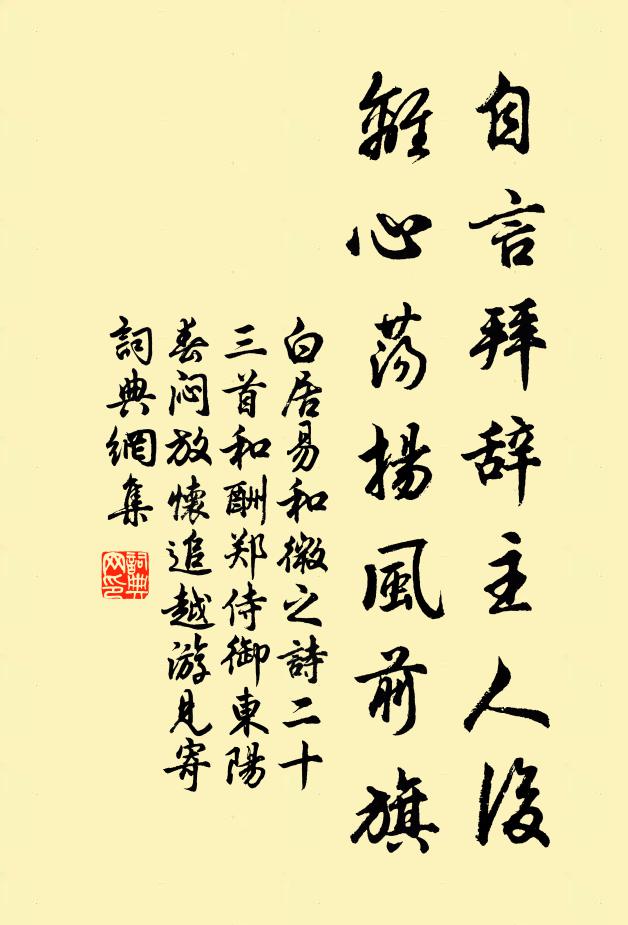 自言拜辞主人後
離心蕩揚風前旗
白居易和微之詩二十
三首和酬郑侍御東陽
春闷放懷追越游見寄
詞典網集
詞典
网印